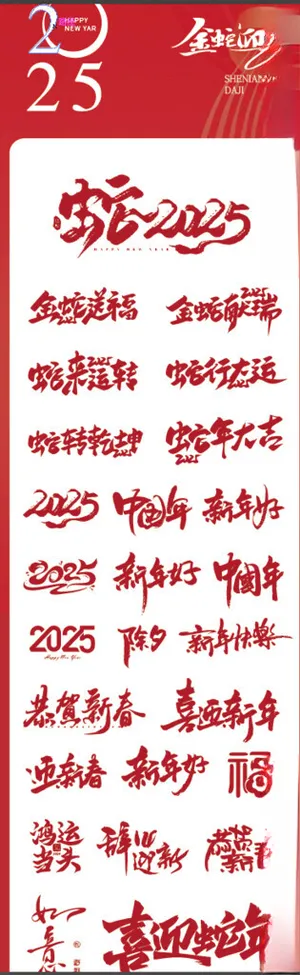 20
HAPPY
NEW YAR
25
金蛇迎
SHENIAN
DAJI
蛇2025
HAPPY NEW YEAR
金蛇送福
金蛇献瑞
蛇来运转2025
蛇行大运
蛇转乾坤
蛇年大吉
2025
2025
中国年
新年好
2025
新年好
中國年
2025
Happy New Year
除夕
新年快樂
恭賀新春
喜迎新年
迎新春
新年好
福
鸿运当头
辞旧迎新
恭贺新
如意
喜迎蛇年